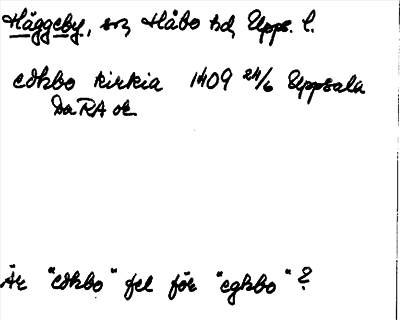 Häggeby, sn, Håbo hd, Upps. l.
edhbo kirkia 1409 24/6 Uppsala
Da RA or
Är "edhbo" fel för "eghbo"?